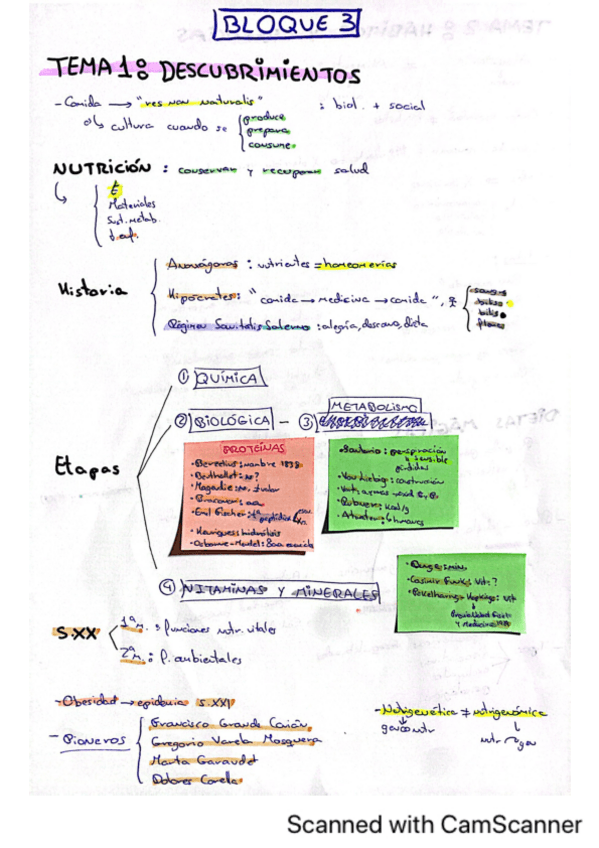 BLOQUE 3
TEMA 1: DESCUBRIMIENTOS
- Comida → "res non naturalis" : biol. + social
es cultura cuando se
produce
prepara
consume.
NUTRICIÓN : conservar y recuperar salud
E
Materiales
Sust. metab.
Historia
Anaxágoras : nutrientes = homeomerías
Hipócrates: "comida → medicina → comida",
bilis
Régimen Sanitatis Salerno : alegría, descanso, dieta
Etapas
① QUÍMICA
② BIOLÓGICA - ③
METABOLISMO
PROTEÍNAS
• Berzelius: nombre 1838
• Berthollet:
• Magendie:
• Braconnot: aa
• Emil Fischer:
• Henriques: hidrólisis
• Osborne-Mendel:
• Santorio: perspiración
insensible
pérdidas
• Von Liebig: construcción
• Rubner: kcal/g
• Atwater: 6 humanos
④ VITAMINAS Y MINERALES
• Casimir Funk: Vit?
• Pekelharing + Hopkins: vit
Y Medicina
S.XX
1ª m. : funciones nutr. vitales
2ª m. : P. ambientales
- Obesidad → epidemia S.XXI
- Pioneros
Francisco Grande Covián
Gregorio Varela Mosquera
Marta Garaudet
Dolores Corella
- Nutrigenética ≠ nutrigenómica
nutr → gen
Scanned with CamScanner